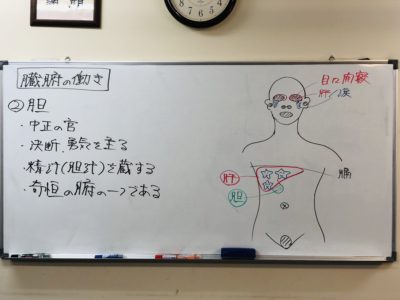 臓腑の働き
②胆
・中正の官
・決断、勇気を主る
・精汁(胆汁)を蔵する
・奇恒の腑の一つである
目に開竅
肝/涙
肝
胆
膈